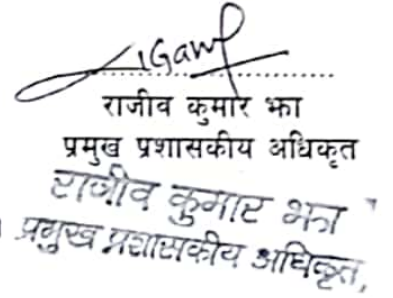 राजीव कुमार झा
प्रमुख प्रशासकीय अधिकृत
राजीव कुमार झा
प्रमुख प्रशासकीय अधिकृत,